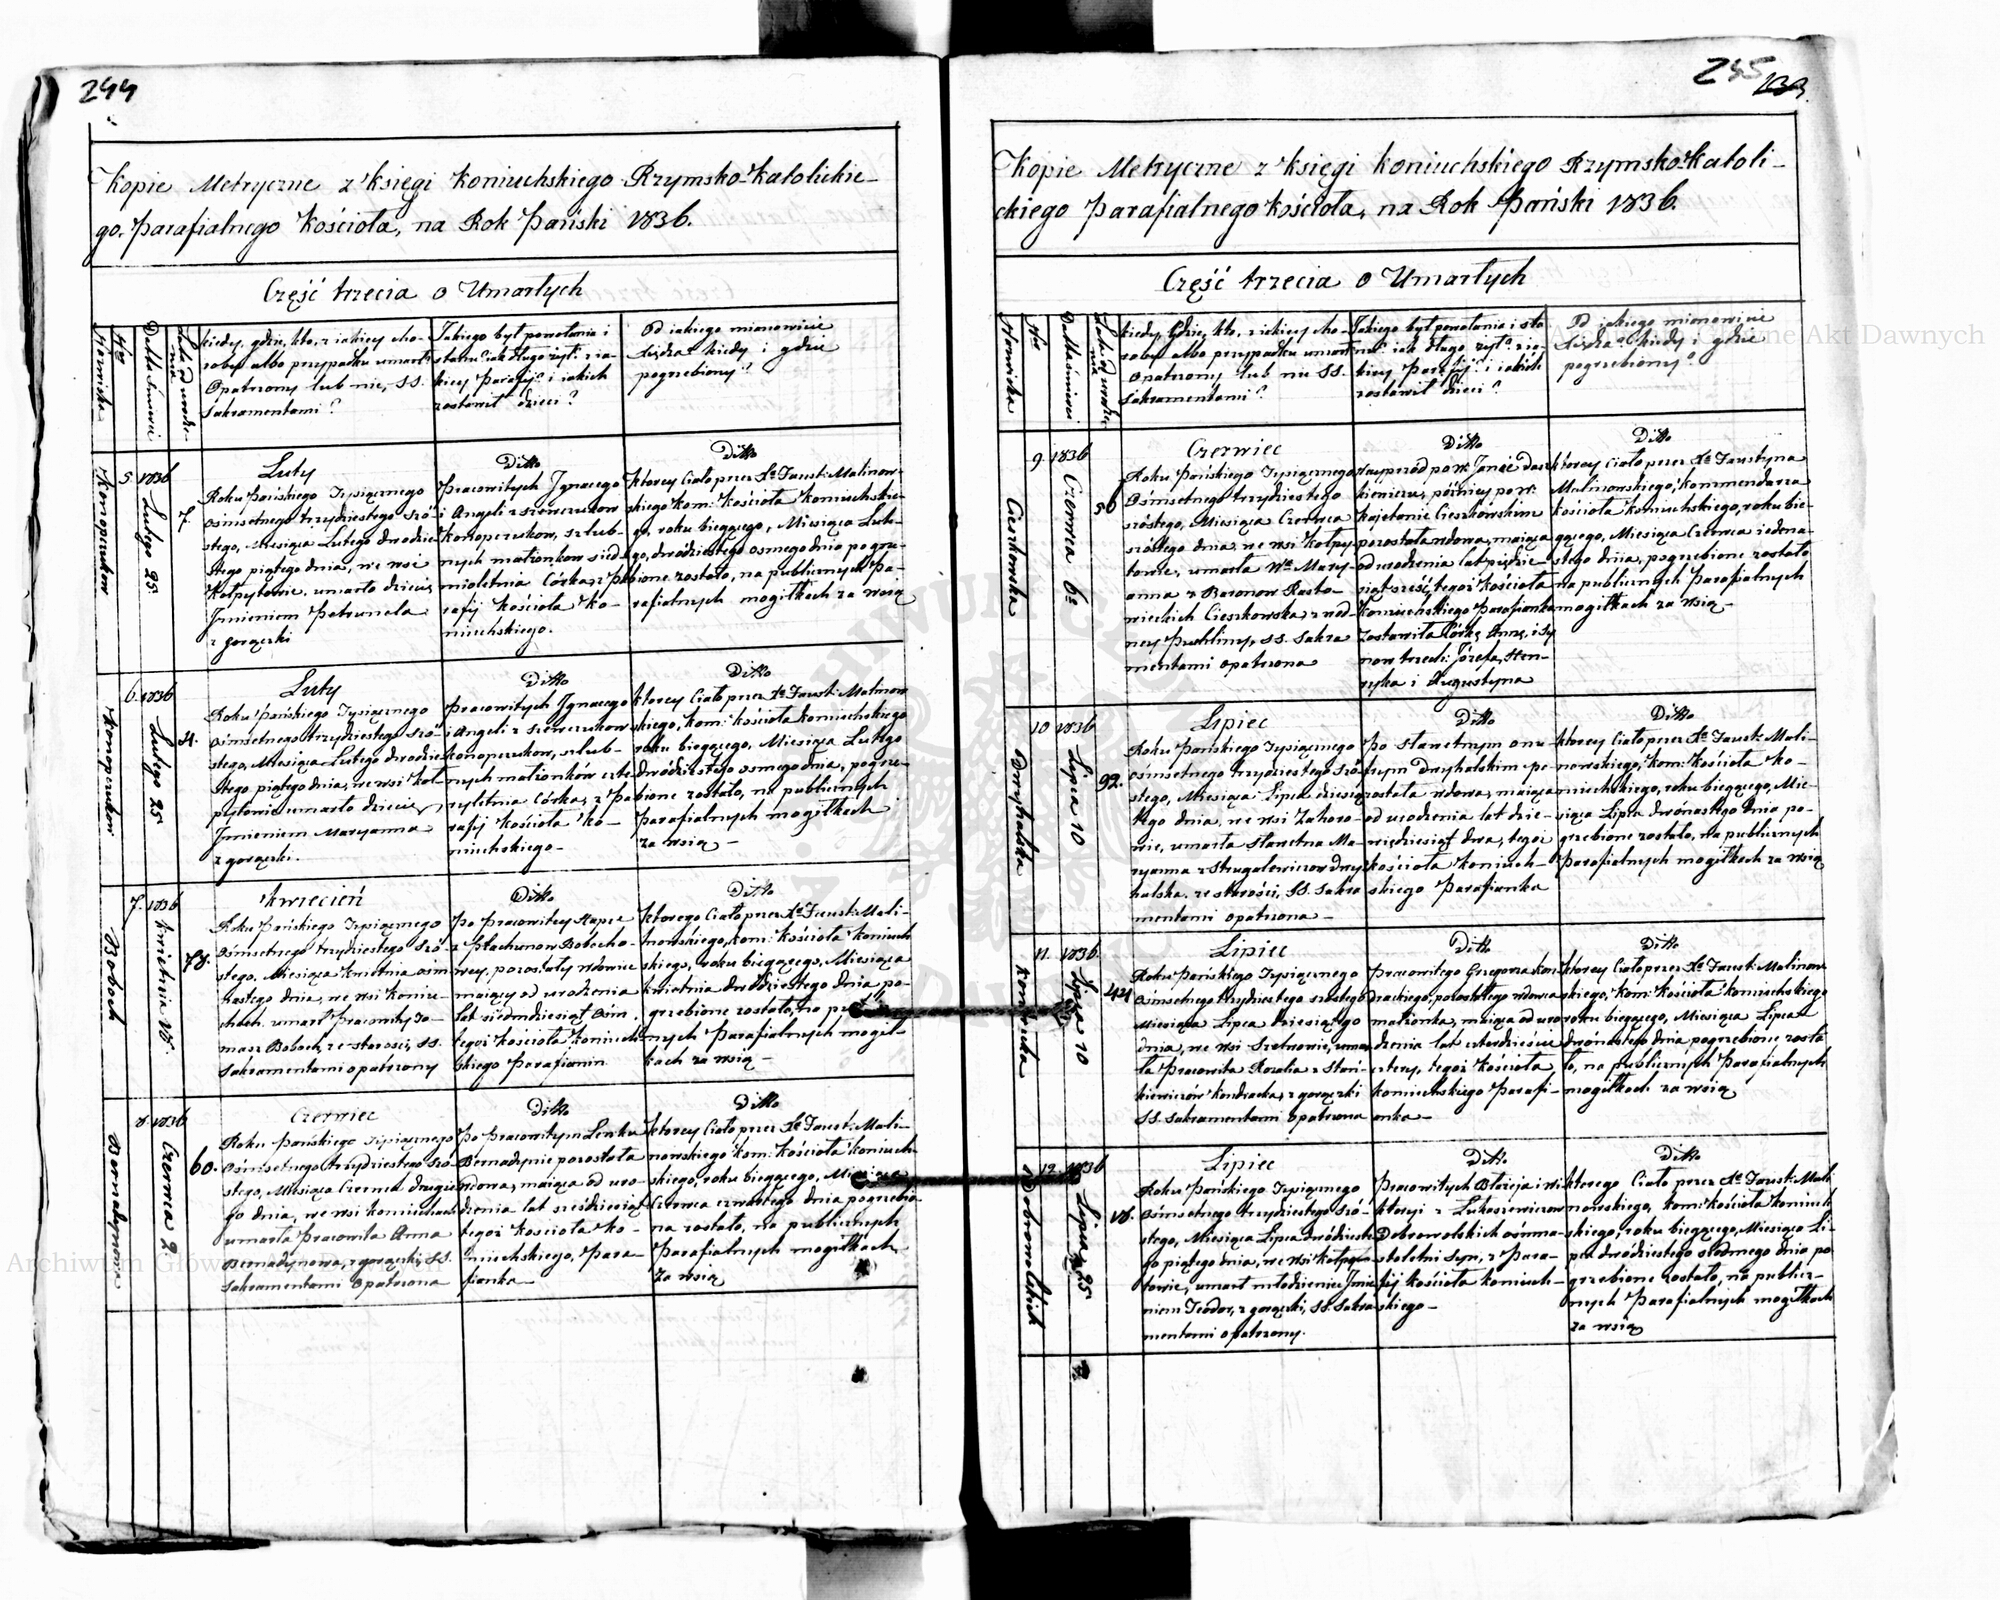 244
Kopie Metryczne z Księgi Koniuchskiego Rzymsko-Katolickie-
go Parafialnego Kościoła, na Rok Pański 1836.
Część trzecia o Umarłych
Nazwiska
Nro
Datta śmierci
Lata od urodze-
nia
Kiedy, gdzie, kto, z iakiey cho-
roby albo przypadku umarł?
Opatrzony lub nie, SS.
Sakramentami?
Jakiego był powołania i
stanu? iak długo żył? z ia-
kiey Parafij? i iakich
zostawił dzieci?
Od iakiego mianowicie
Xiędza? kiedy i gdzie
pogrzebiony?
Konopczukow
5
1836
Lutego 25
7.
Luty
Roku Pańskiego Tysiącznego
Ośmsetnego trzydziestego szó-
stego, Miesiąca Lutego dwódzie-
stego piątego dnia, we wsi
Kołpytowie, umarło dziecię
Jmieniem Petrunela
z gorączki
Ditto
Pracowitych Jgnacego
i Angeli z Szewczukow
Konopczukow, szlub-
nych małżonkow sied-
mioletnia Córka, z Pa-
rafij Kościoła Ko-
niuchskiego.
Ditto
Którey Ciało przez Xa Faust: Malinow-
skiego Kom: Kościoła Koniuchskie-
go, roku bieżącego, Miesiąca Lute-
go, dwódziestego osmego dnia pogrze-
bione zostało, na publicznych Pa-
rafialnych mogiłkach za wsią
Konopczukow
6
1836
Lutego 25
4.
Luty
Roku Pańskiego Tysiącznego
Ośmsetnego trzydziestego szó-
stego, Miesiąca Lutego dwodzie-
stego piątego dnia, we wsi Koł-
pytowie umarło dziecię,
Jmieniem Maryanna
z gorączki.
Ditto
Pracowitych Jgnacego
i Angeli z Szewczukow
Konopczukow, szlub-
nych małżonków czte-
ryletnia Córka, z Pa-
rafij Kościoła Ko-
niuchskiego
Ditto
Którey Ciało przez Xa Faust: Malinow
skiego, Kom: Kościoła Koniuchskiego
roku bieżącego, Miesiąca Lutego
dwódziestego osmego dnia, pogrze-
bione zostało, na publicznych
Parafialnych mogiłkach
za wsią
Boboch
7.
1836
Kwietnia 18.
78.
Kwiecień
Roku Pańskiego Tysiącznego
Ośmsetnego trzydziestego szó-
stego, Miesiąca Kwietnia ośm-
nastego dnia, we wsi Koniu-
chach umarł Pracowity To-
masz Boboch, ze starości, SS.
Sakramentami opatrzony
Ditto
Po Pracowitey
z Płachunow Bobocho-
wey, pozostały wdowiec
maiący od urodzenia
lat siedmdziesiąt ośm,
tegoż Kościoła Koniuch-
skiego Parafianin
Ditto
Którego Ciało przez Xa Faust: Mali-
nowskiego, kom: Kościoła Koniuch
skiego, roku bieżącego, Miesiąca
Kwietnia dwódziestego dnia po-
grzebione zostało, na publicz-
nych Parafialnych mogił-
kach za wsią
Bernadynowa
8
1836
Czerwca 2
60.
Czerwiec
Roku Pańskiego Tysiącznego
Ośmsetnego trzydziestego szó-
stego, Miesiąca Czerwca drugie-
go dnia, we wsi Koniuchach
umarła Pracowita Anna
Bernadynowa, z gorączki, SS.
Sakramentami opatrzona
Ditto
Po Pracowitym Lenku
Bernadynie pozostała
wdowa, maiąca od uro-
dzenia lat sześdziesiąt
tegoż Kościoła Ko-
niuchskiego, Para-
fianka
Ditto
Którey Ciało przez Xa Faust: Mali-
nowskiego kom: Kościoła Koniuch-
skiego, roku bieżącego, Miesiąca
Czerwca czwartego dnia pogrzebio-
na zostało, na publicznych
Parafialnych mogiłkach
za wsią
245
Kopie Metryczne z Księgi Koniuchskiego Rzymsko-Katoli-
ckiego Parafialnego Kościoła, na Rok Pański 1836.
Część trzecia o Umarłych
Nazwiska
Nro
Datta śmierci
Lata od urodze-
nia
Kiedy, Gdzie, Kto, z iakiey cho-
roby albo przypadku umarł?
Opatrzony lub nie SS.
Sakramentami?
Jakiego był powołania i sta-
nu? iak długo żył? z ia-
kiey Parafij? i iakich
zostawił dzieci?
Od iakiego mianowicie
Xiędza? kiedy i gdzie
pogrzebiony?
Cieszkowska
9
1836
Czerwca 6o
56
Czerwiec
Roku Pańskiego Tysiącznego
Ośmsetnego trzydziestego
szóstego, Miesiąca Czerwca
szóstego dnia, we wsi Kołpy-
towie, umarła Wa Mary-
anna z Baronow Rasto-
wieckich Cieszkowska, z wod-
ney Puchliny, SS. Sakra
mentami opatrzona
Ditto
Nayprzód po W.
później po W.
Kajetanie Cieszkowskim
pozostała wdowa, maiąca
od urodzenia lat pięćdzie-
siąt sześć, tegoż Kościoła
Koniuchskiego Parafianka
Zostawiła Córkę Annę, i Sy-
now trzech: Józefa, Hen-
ryka i Augustyna
Ditto
Którey Ciało przez Xa Faustyna
Malinowskiego, Kommendarza
Kościoła Koniuchskiego, roku bie-
żącego, Miesiąca Czerwca iedena-
stego dnia, pogrzebione zostało
na publicznych Parafialnych
mogiłkach za wsią
Dwyhalska
10
1836
Lipca 10
92.
Lipiec
Roku Pańskiego Tysiącznego
Ośmsetnego trzydziestego szó-
stego, Miesiąca Lipca dziesią-
tego dnia, we wsi Zahoro-
wie, umarła Sławetna Ma-
ryanna z Strugalewiczow Dwy-
halska, ze starości, SS. Sakra
mentami opatrzona
Ditto
Po Sławetnym Onu-
frym Dwyhalskim po-
została wdowa, maiąca
od urodzenia lat dzie-
więdziesiąt dwa, tegoż
Kościoła Koniuch-
skiego Parafianka
Ditto
Którey Ciało przez Xa Faust: Mali-
nowskiego, kom: Kościoła Ko-
niuchskiego, roku bieżącego, Mie-
siąca Lipca dwónastego dnia po-
grzebione zostało, na publicznych
Parafialnych mogiłkach za wsią
Kondracka
11.
1836.
Lipca 10
44
Lipiec
Roku Pańskiego Tysiącznego
Ośmsetnego trzydziestego szóstego
Miesiąca Lipca dziesiątego
dnia, we wsi Szelwowie, umar-
ła Pracowita Rozalia z Stan-
kiewiczów Kondracka, z gorączki
SS. Sakramentami opatrzona
Ditto
Pracowitego Grzegorza Kon-
drackiego, pozostałego wdowca
małżonka, maiąca od uro-
dzenia lat czterdzieści
cztery, tegoż Kościoła
Koniuchskiego Parafi-
anka
Ditto
Którey Ciało przez Xa Faust: Malinow
skiego, kom: Kościoła Koniuchskiego
roku bieżącego, Miesiąca Lipca
dwónastego dnia pogrzebione zosta
ło, na publicznych Parafialnych
mogiłkach za wsią
Dobrowolskich
12
1836
Lipca 25
18.
Lipiec
Roku Pańskiego Tysiącznego
Ośmsetnego trzydziestego szó-
stego, Miesiąca Lipca dwódzieste-
go piątego dnia, we wsi Kołpy-
towie, umarł młodzieniec Jmie
niem Teodor, z gorączki, SS. Sakra
mentami opatrzony.
Ditto
Pracowitych Błażeja i Wi-
ktoryi z Łukaszewiczow
Dobrowolskich ośmna-
stoletni Syn, z Para-
fij Kościoła Koniuch-
skiego
Ditto
Którego Ciało przez Xa Faust: Mali-
nowskiego, kom: Kościoła Koniuch
skiego, roku bieżącego, Miesiąca Li-
pca dwódziestego siódmego dnia po
grzebione zostało, na publicz-
nych Parafialnych mogiłkach
za wsią
Archiwum Główne Akt Dawnych
Archiwum Główne Akt Dawnych